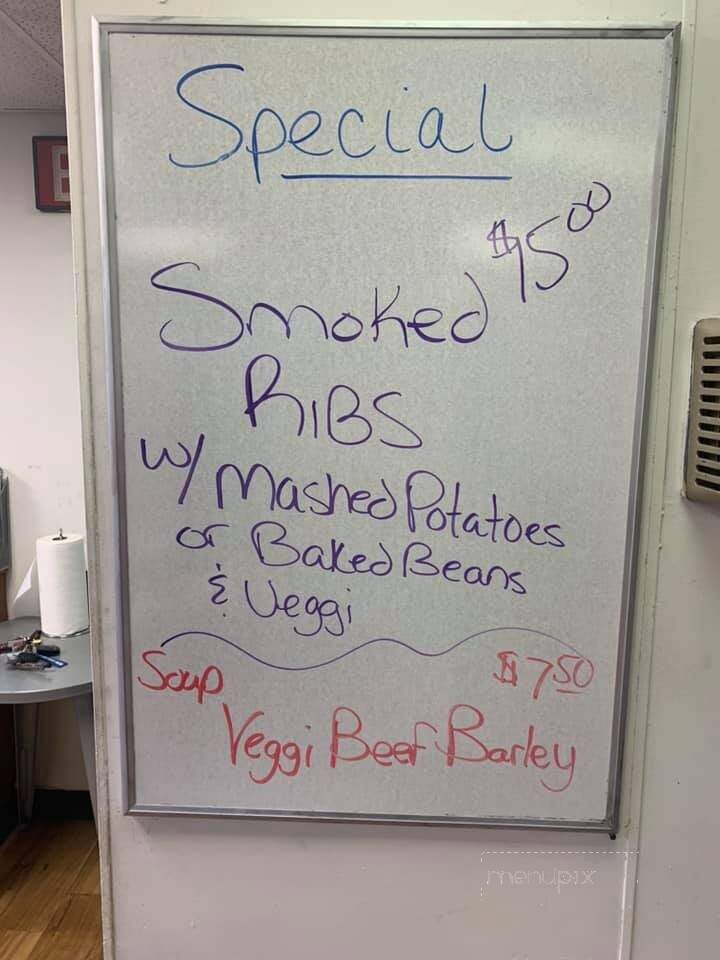 Special
$15.00
Smoked
RIBS
w/ Mashed Potatoes
or Baked Beans
& Veggi
Soup $7.50
Veggi Beef Barley
menupix